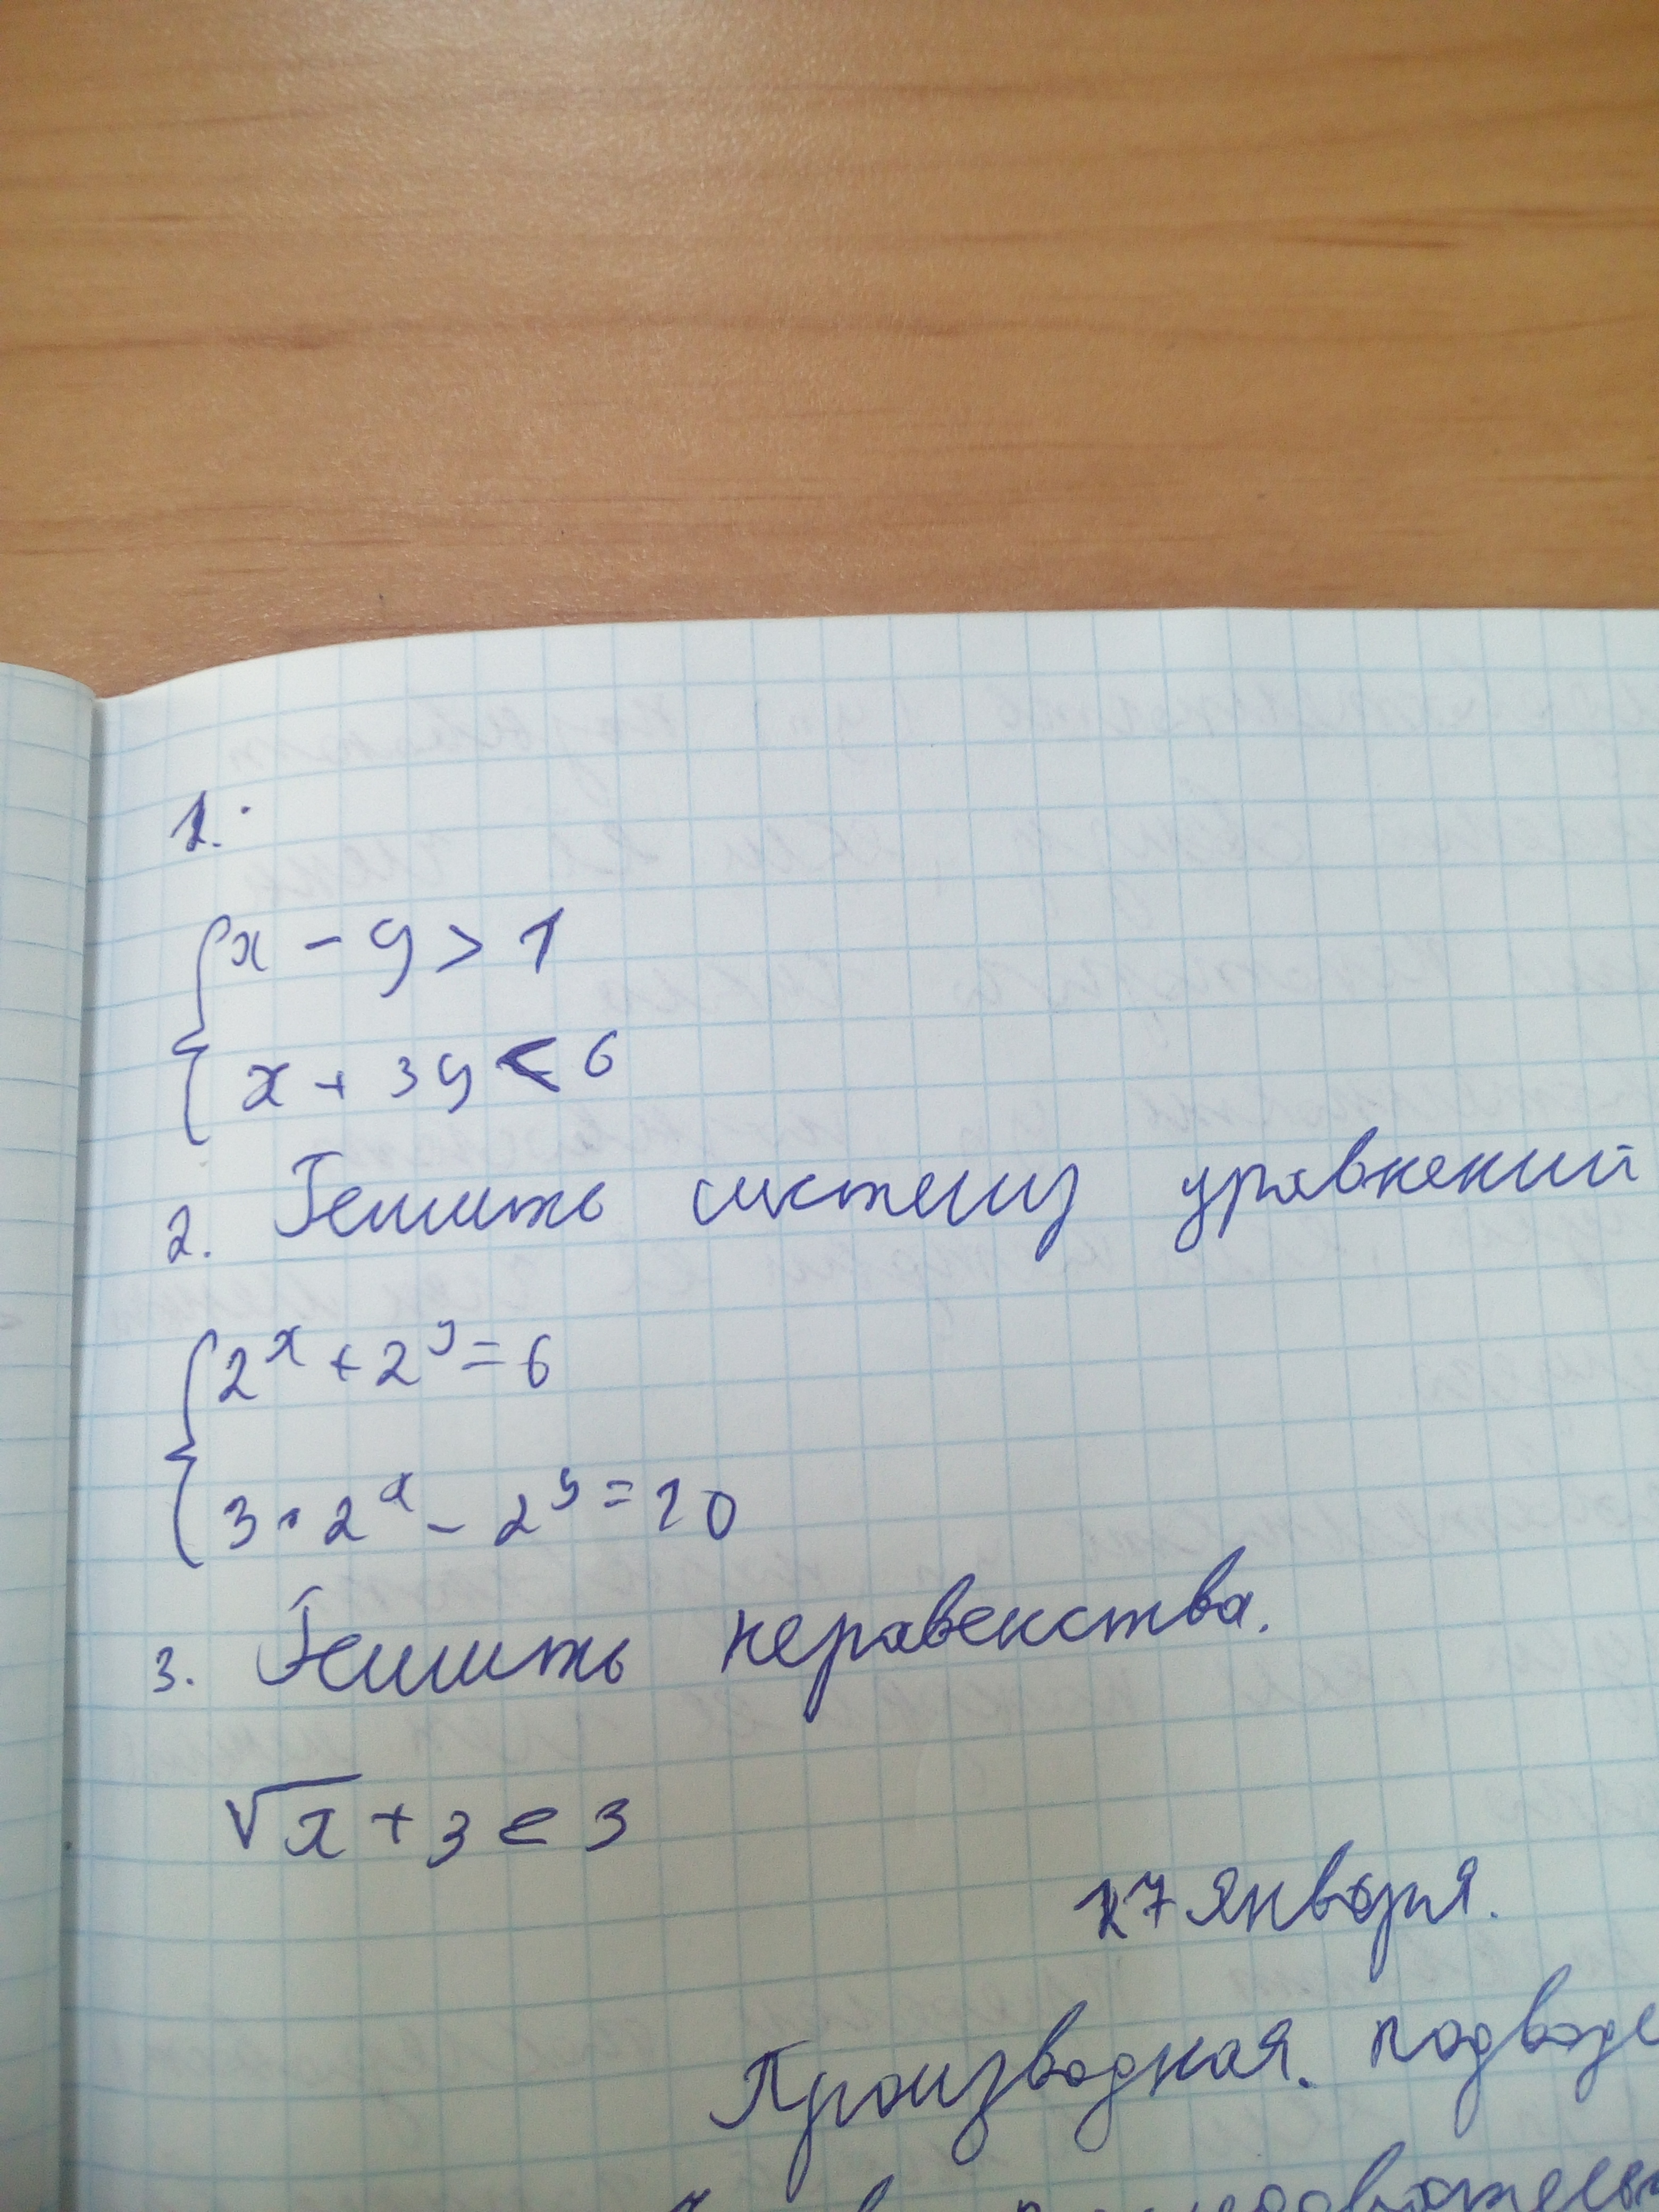 1.
x - y > 1
x + 3y < 6
2. Решить систему уравнений
2^x + 2^y = 6
3 · 2^x - 2^y = 10
3. Решить неравенства.
√x + 3 < 3
27 января.
Производная.